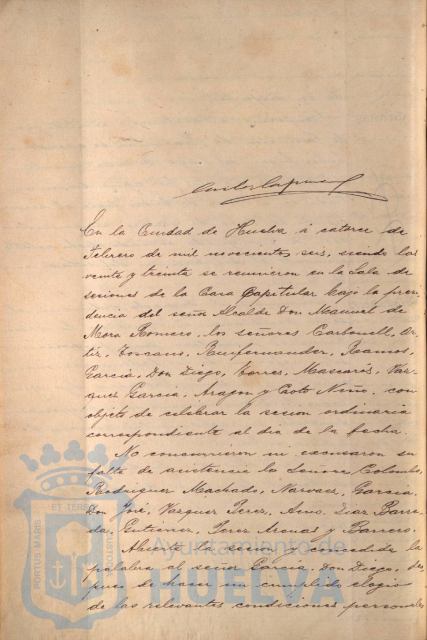 En la Ciudad de Huelva á catorce de
Febrero de mil novecientos seis, siendo las
veinte y treinta se reunieron en la Sala de
sesiones de la Casa Capitular bajo la presi
dencia del señor Alcalde Don Manuel de
Mora Romero, los señores Carbonell, Or
tiz, Toscano, Ramos,
Garcia, Don Diego, Torres, Mascarós, Vaz
quez Garcia, Aragon y Coto Niño, con
objeto de celebrar la sesion ordinaria
correspondiente al dia de la fecha.
No concurrieron ni excusaron su
falta de asistencia los Señores Colombo,
Rodriguez Machado, Narvaez, Garcia,
Don José, Vazquez Perez, Diaz Barre
da, Gutierrez, Perez Arenas y Barroso.
Abierta la sesion y concedida la
palabra al señor Garcia, Don Diego, des
pues de hacer un cumplido elogio
de las relevantes condiciones personales
PORTUS MARIS ET TERRAE CUSTODIA
Ayuntamiento de
HUELVA